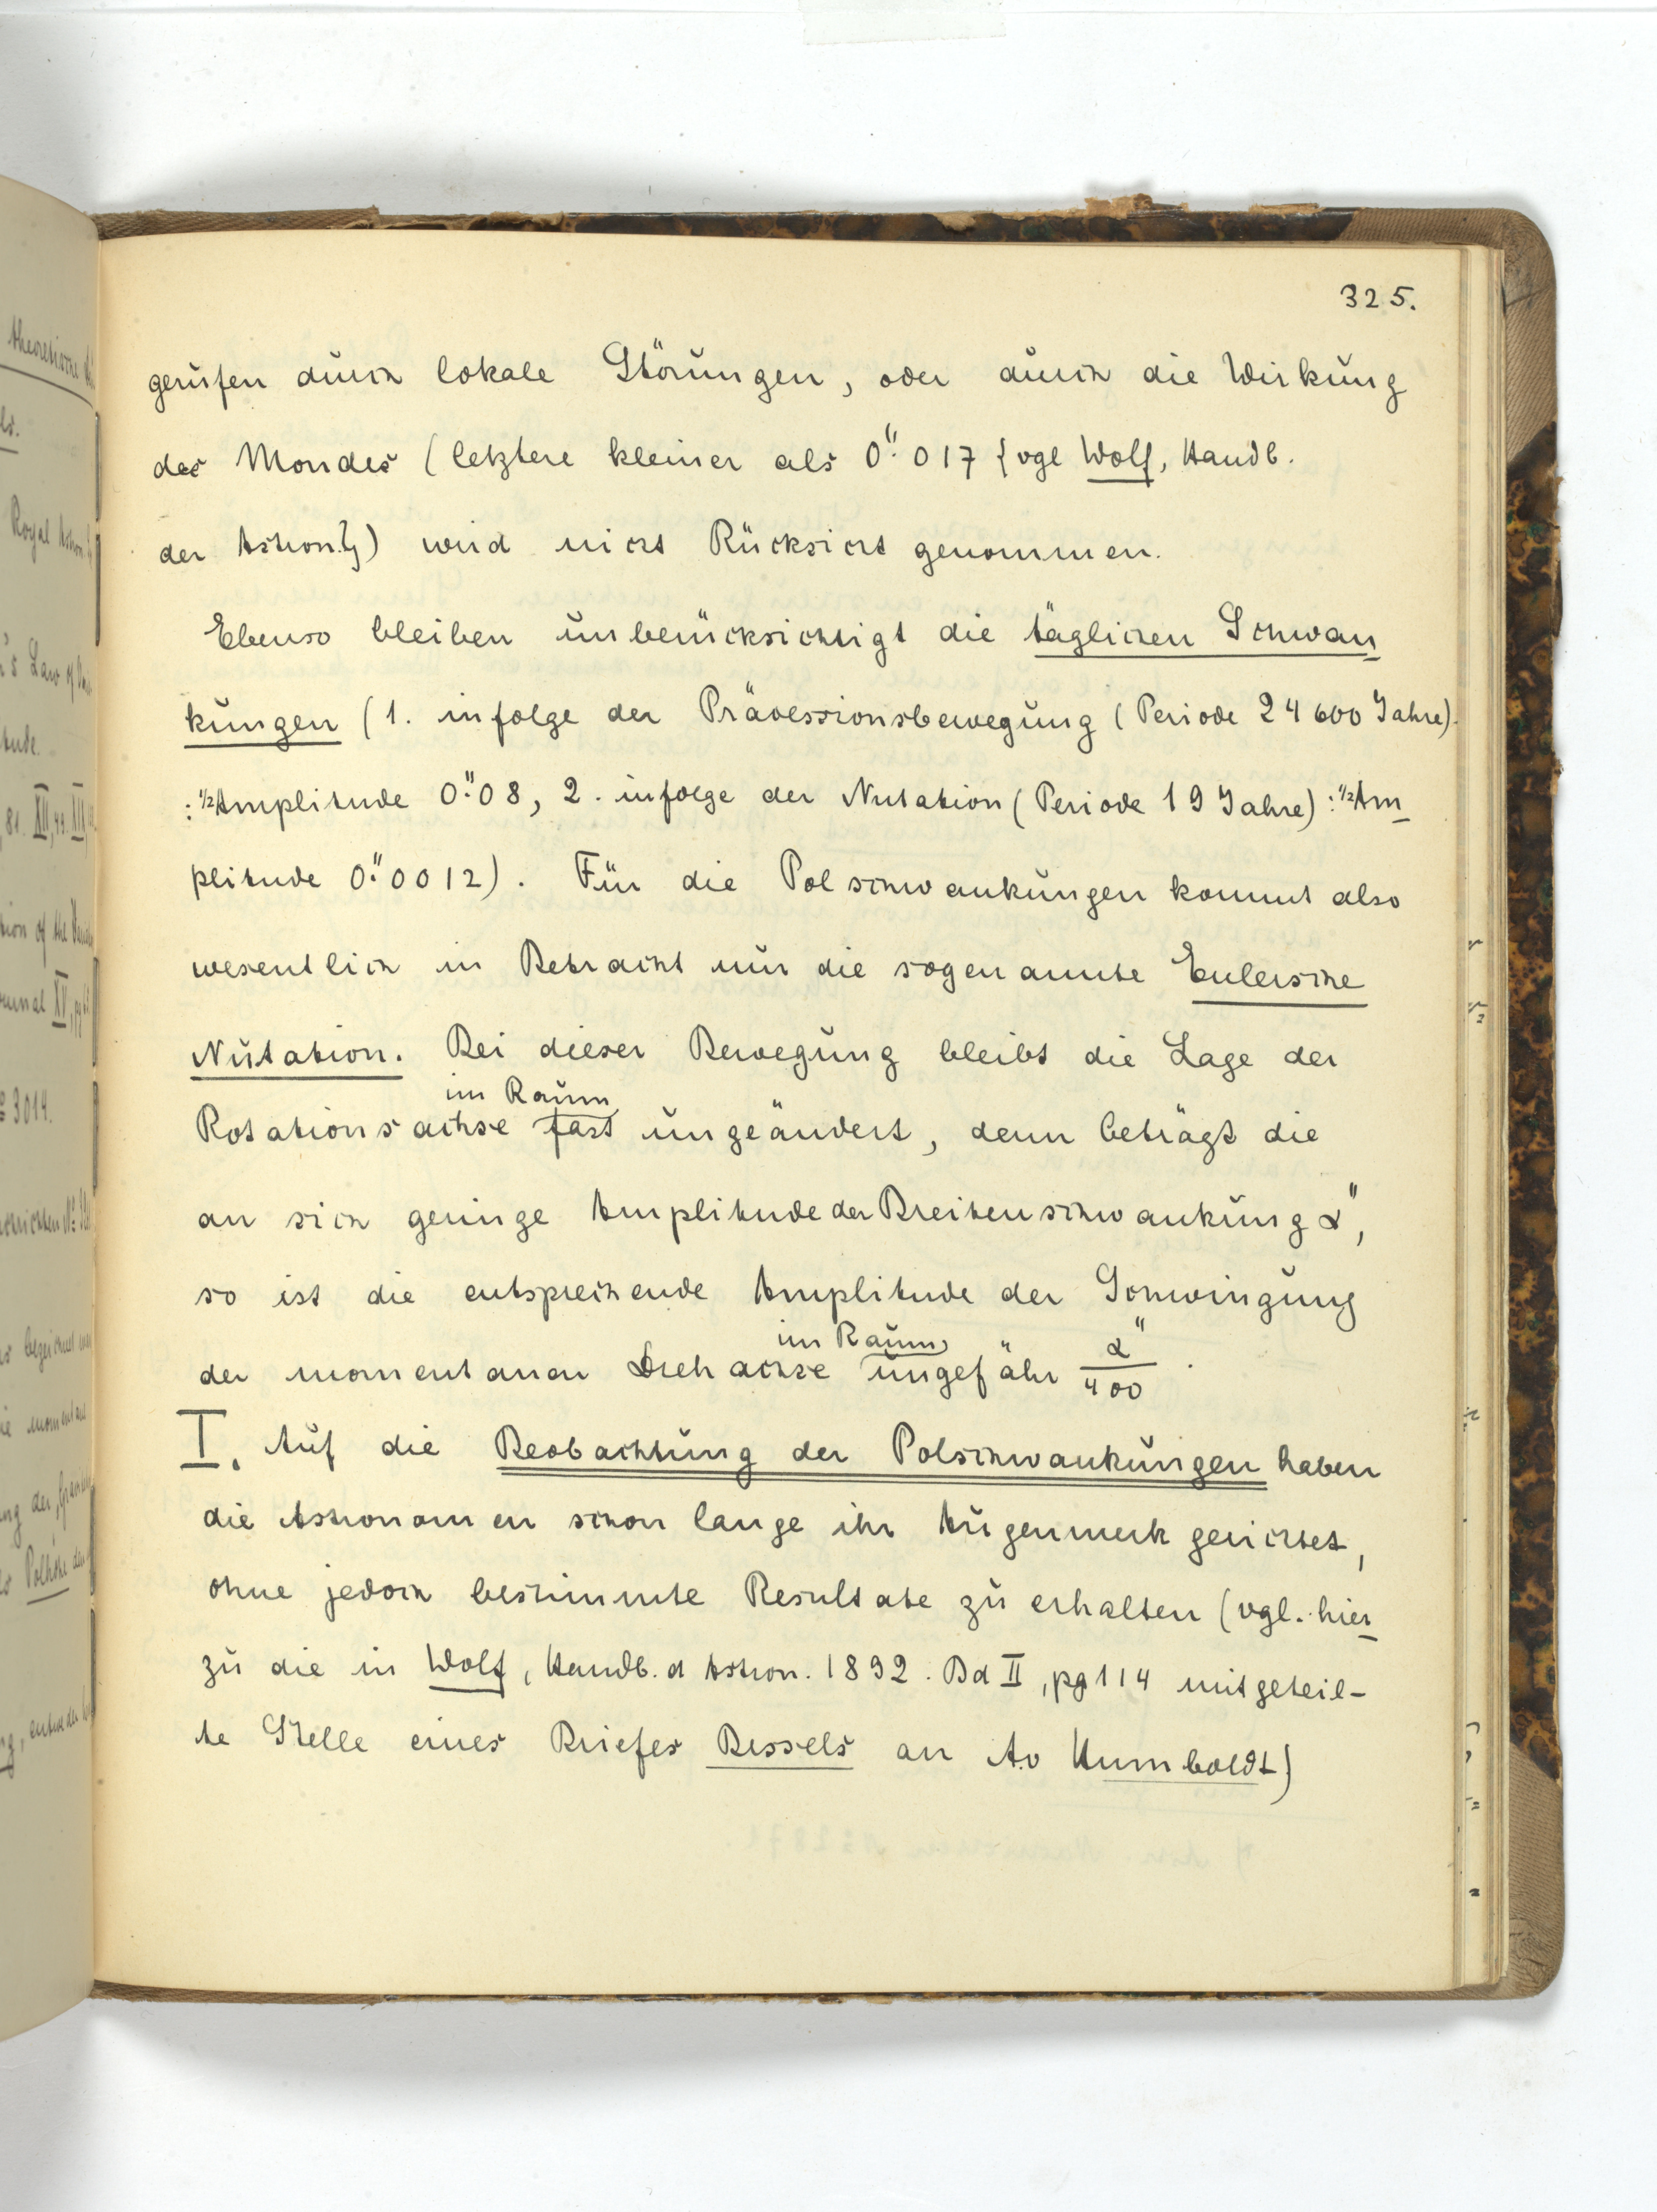 325.
gerufen durch lokale Störungen, oder durch die Wirkung
des Mondes (letztere kleiner als 0".017 {vgl Wolf, Handb.
der Astron.}) wird nicht Rücksicht genommen.
Ebenso bleiben unberücksichtigt die täglichen Schwan
kungen (1. infolge der Präcessionsbewegung (Periode 24600 Jahre).
: 1/2 Amplitude 0".08, 2. infolge der Nutation (Periode 19 Jahre): 1/2 Am
plitude 0".0012). Für die Polschwankungen kommt also
wesentlich in Betracht nur die sogenannte Eulersche
Nutation. Bei dieser Bewegung bleibt die Lage der
im Raum
Rotationsachse fast ungeändert, denn beträgt die
an sich geringe Amplitude der Breitenschwankung α",
so ist die entsprechende Amplitude der Schwingung
im Raum
der momentanen Drehachse ungefähr α"/400.
I. Auf die Beobachtung der Polschwankungen haben
die Astronomen schon lange ihr Augenmerk gerichtet,
ohne jedoch bestimmte Resultate zu erhalten (vgl. hier
zu die in Wolf, Handb. d Astron. 1892. Bd II, pg 114 mitgeteil-
te Stelle eines Briefes Bessels an A.v Humboldt)